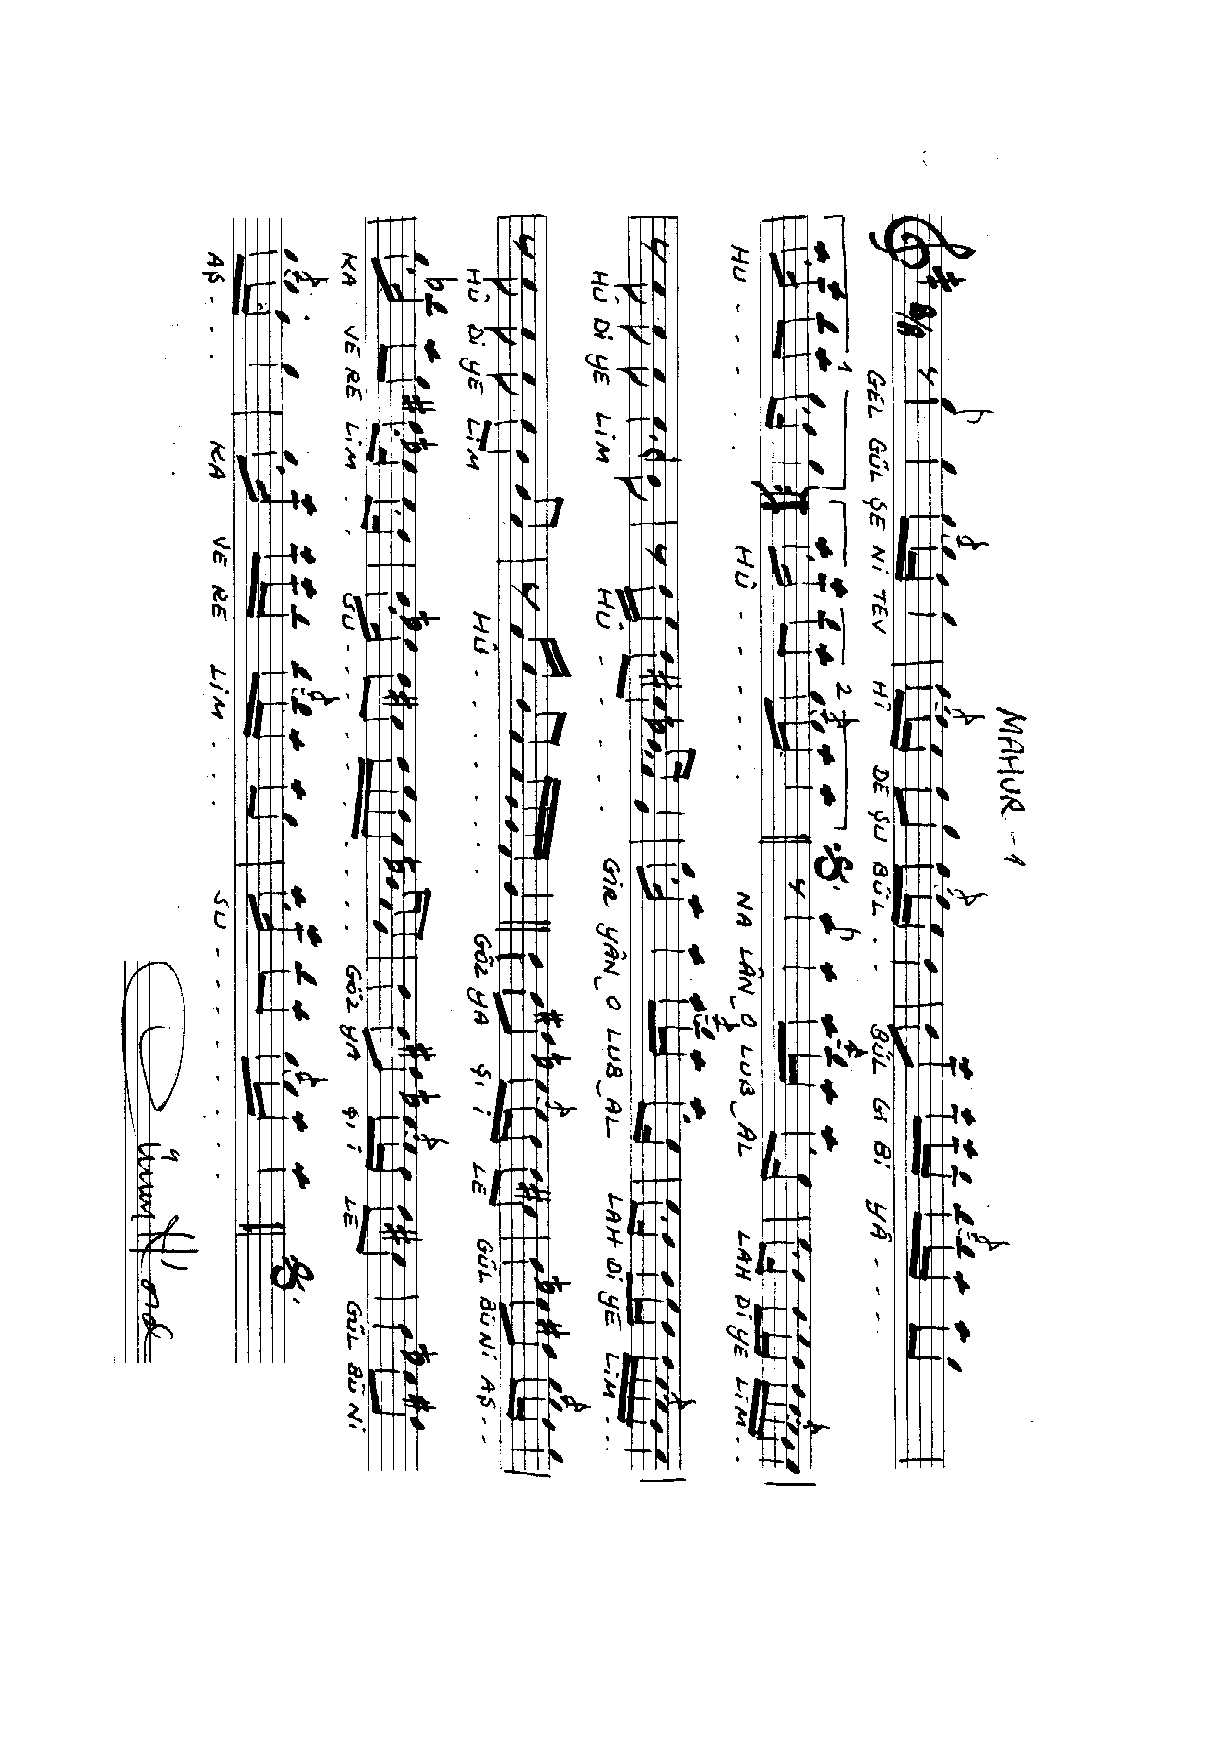 MAHUR - 1
8/8
GEL GÜL ŞE Nİ TEV Hİ DE ŞU BÜL . . BÜL Gİ Bİ YÂ . . . .
1 2
HU . . . . HÛ . . . . NA LÂN_O LUB_AL LAH Dİ YE LİM . .
HÛ Dİ YE LİM HÛ . . . . GİR YÂN_O LUB_AL LAH Dİ YE LİM . .
HÛ Dİ YE LİM HÛ . . . . . GÖZ YA Şİ İ LE GÜL BÜ Nİ AŞ . .
KA VE RE LİM . . SU . . . . . . . GÖZ YA Şİ İ LE GÜL BÜ Nİ
AŞ . . KA VE RE LİM . . . SU . . . . . . .